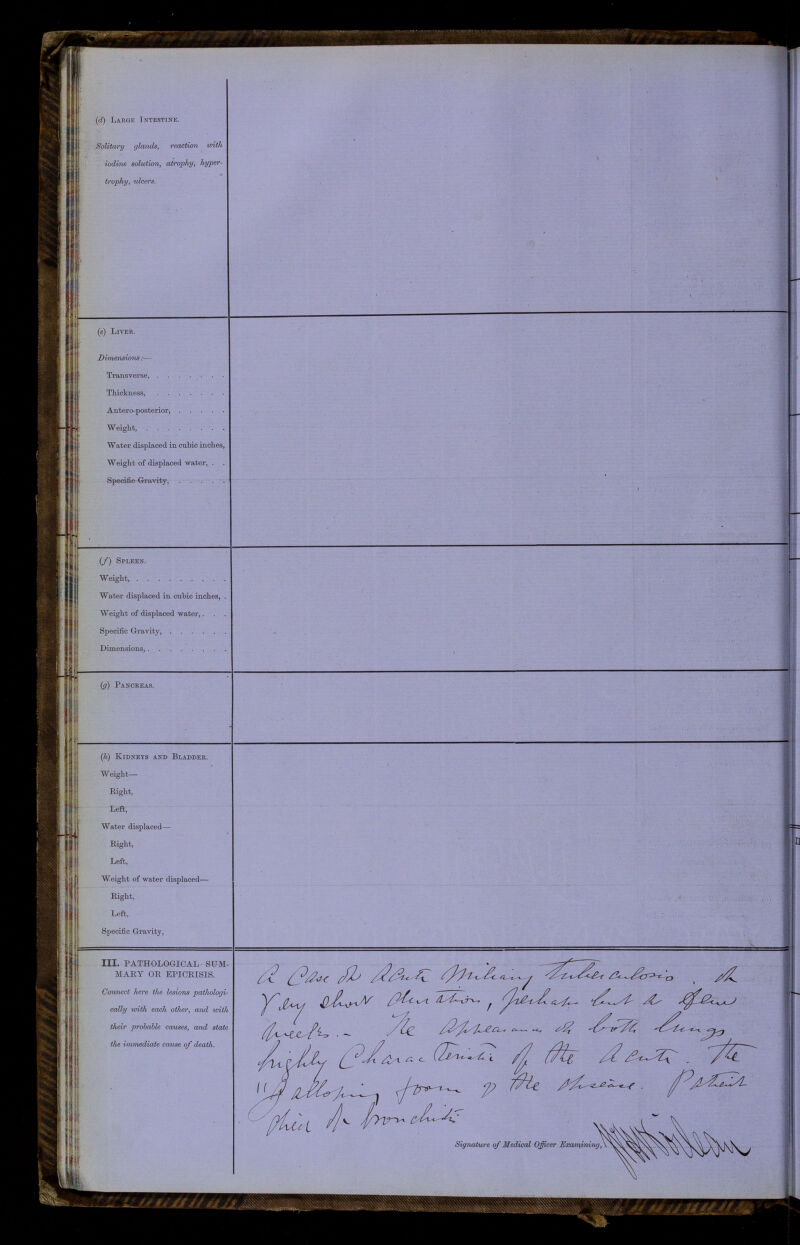 (d) LARGE INTESTINE.
Solitary glands, reaction with
iodine solution, atrophy, hyper-
trophy, ulcers.
(e) LIVER.
Dimensions:—
Transverse, . . . . . . .
Thickness, . . . . . . .
Antero-posterior, . . . . .
Weight, . . . . . . . .
Water displaced in cubic inches,
Weight of displaced water, . .
Specific Gravity, . . . . .
(f) SPLEEN.
Weight, . . . . . . . . .
Water displaced in cubic inches, .
Weight of displaced water, . . .
Specific Gravity, . . . . . .
Dimensions, . . . . . . . .
(g) PANCREAS.
(h) KIDNEYS AND BLADDER.
Weight—
Right,
Left,
Water displaced—
Right,
Left,
Weight of water displaced—
Right,
Left,
Specific Gravity,
III. PATHOLOGICAL SUM-
MARY OR EPICRISIS.
Connect here the lesions pathologi-
cally with each other, and with
their probable causes, and state
the immediate cause of death.
A Case of Acute Miliary tuberculosis. of
Very short duration, perhaps but a few
weeks. - The appearances of both lungs
highly Characteristic of the Acute. The
"galloping form of the disease. Patient
died of bronchitis
Signature of Medical Officer Examining,